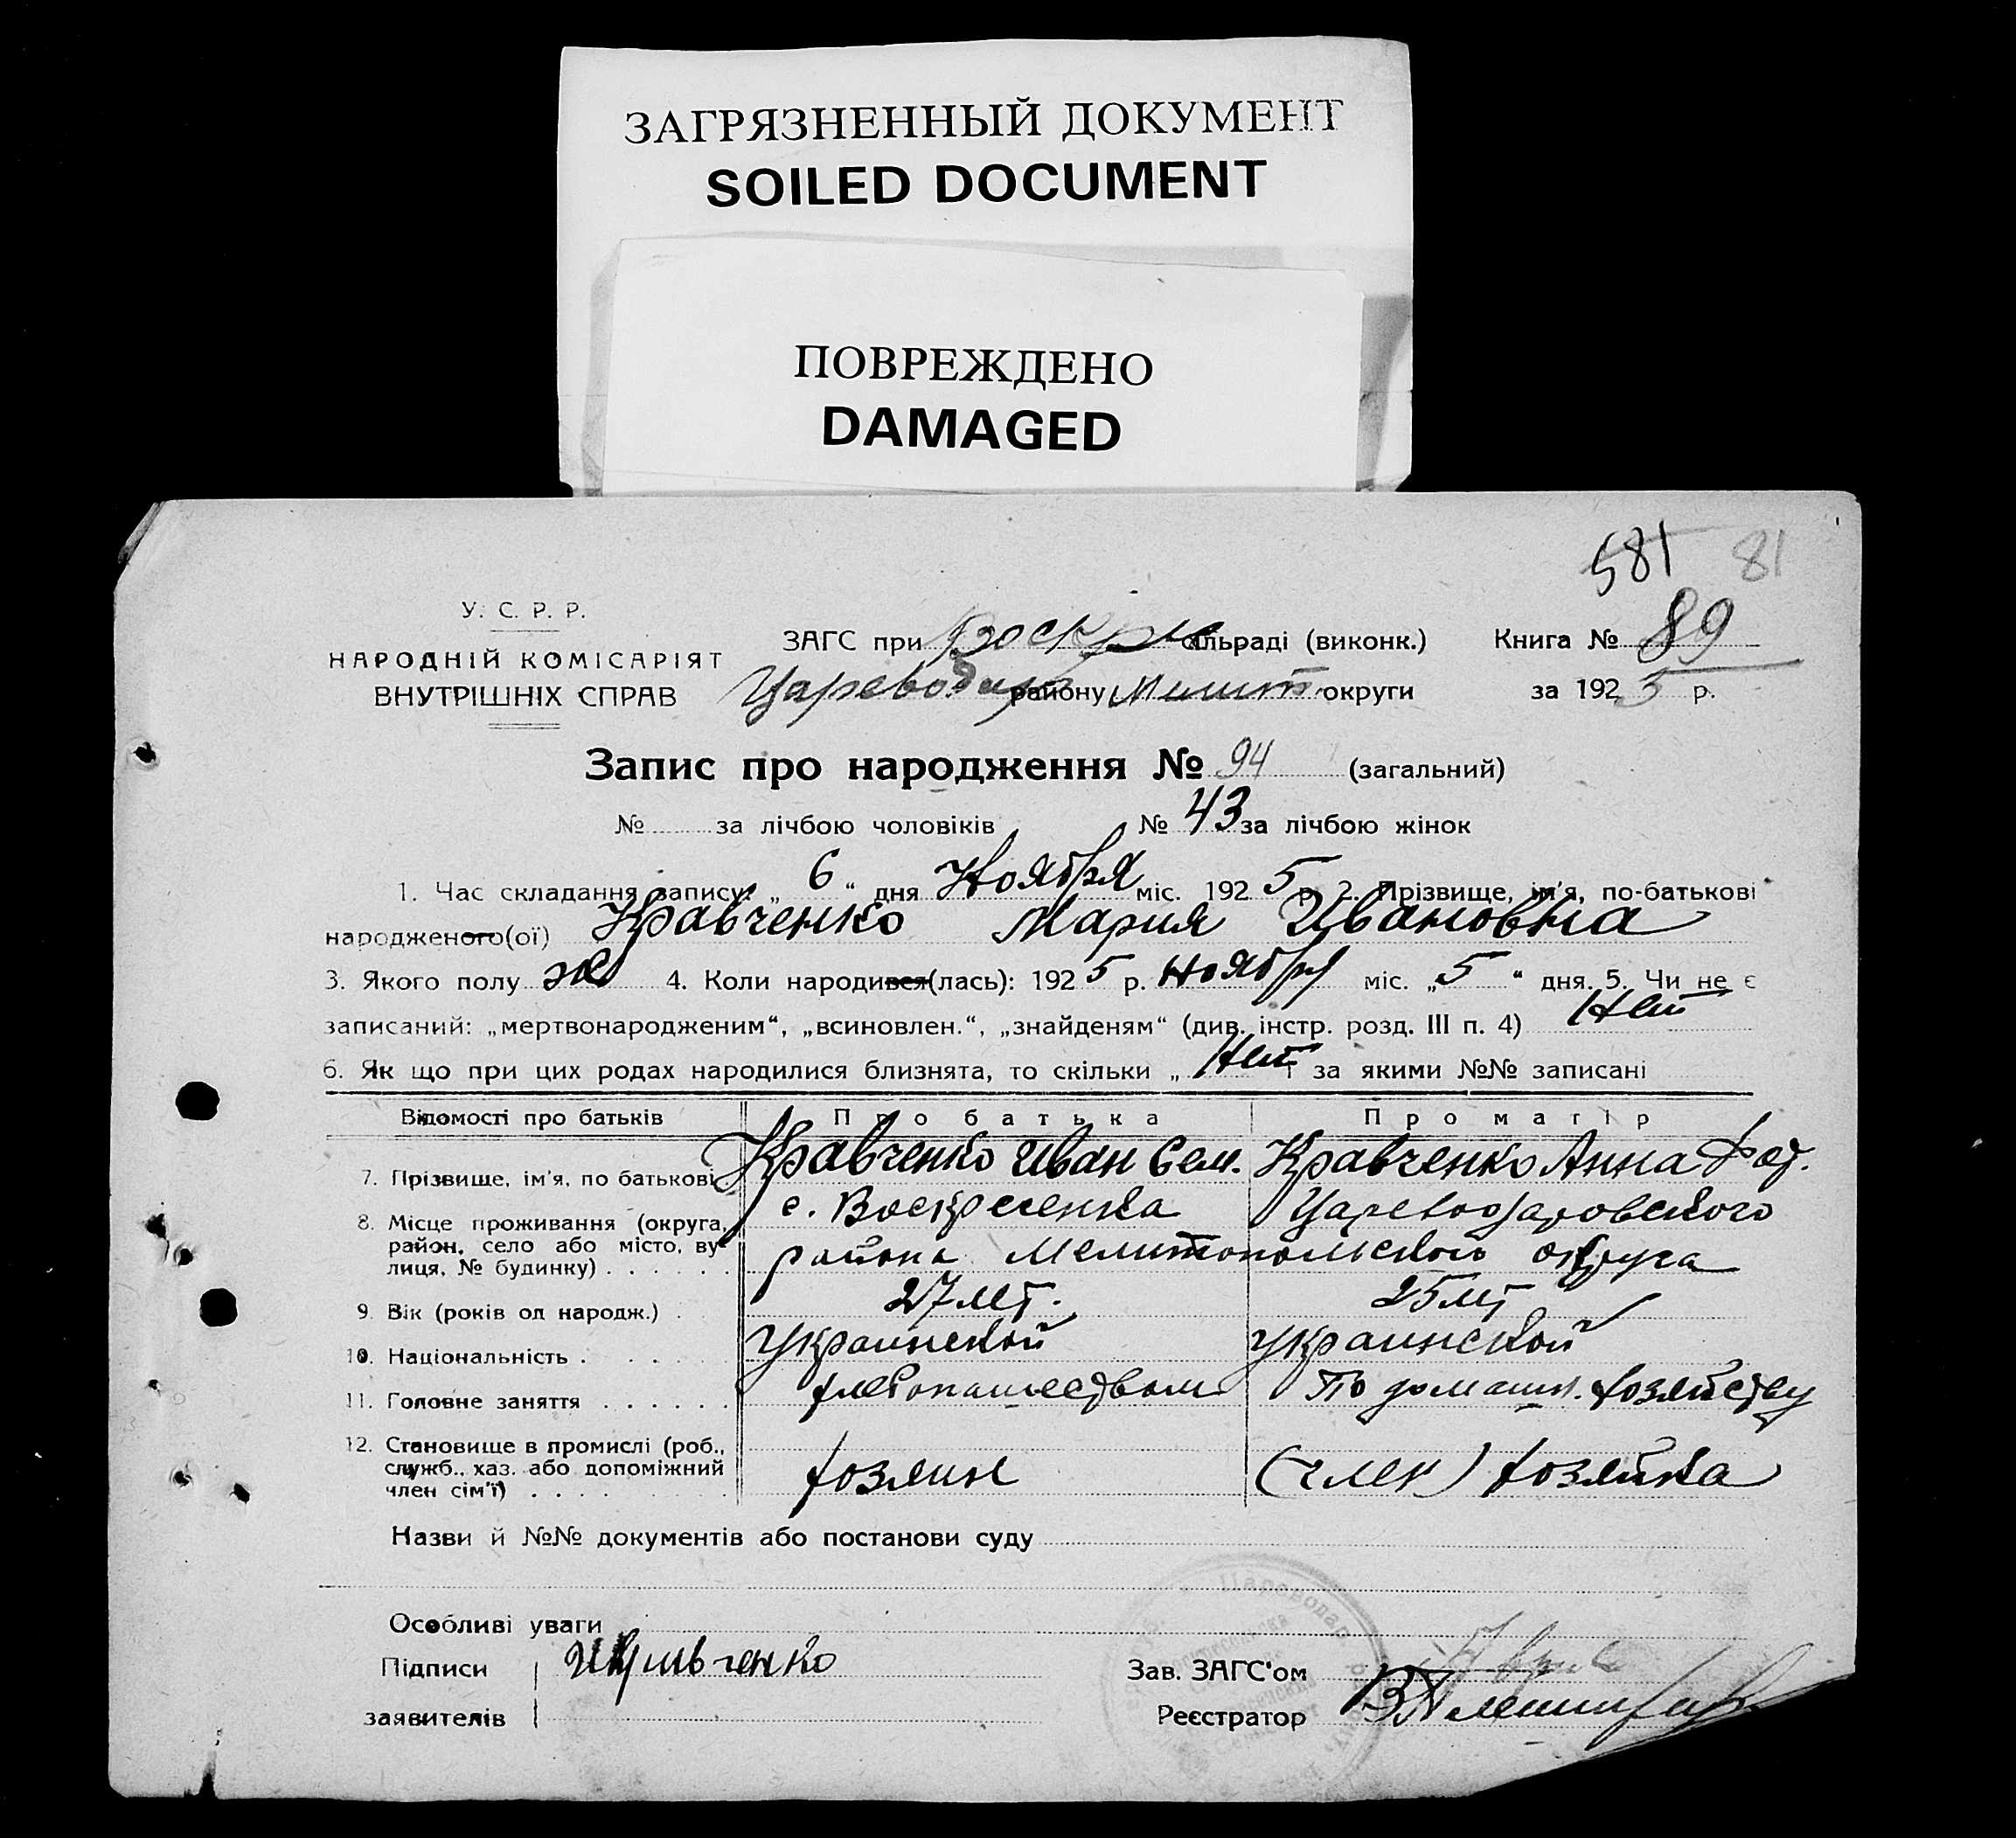 ЗАГРЯЗНЕННЫЙ ДОКУМЕНТ
SOILED DOCUMENT
ПОВРЕЖДЕНО
DAMAGED
581 81
У. С. Р. Р.
НАРОДНІЙ КОМІСАРІЯТ
ВНУТРІШНІХ СПРАВ
ЗАГС при Воскр сільраді (виконк.) Книга № 89
Цареводар району Мелит округи за 1925 р.
Запис про народження № 94 (загальний)
№ за лічбою чоловіків № 43 за лічбою жінок
1. Час складання запису: „ 6 “ дня Ноября міс. 1925 р. 2. Прізвище, ім'я, по-батькові
народженого(ої) Кравченко Мария Ивановна
3. Якого полу ж 4. Коли народився(лась): 1925 р. Ноября міс. „ 5 “ дня. 5. Чи не є
записаний: „мертвонародженим“, „всиновлен.“, „знайденям“ (див. інстр. розд. III п. 4) Нет
6. Як що при цих родах народилися близнята, то скільки „ Нет і за якими №№ записані
Відомості про батьків Про батька Про матір
7. Прізвище, ім'я, по батькові Кравченко Иван Сем. Кравченко Анна Фед.
8. Місце проживання (округа, район, село або місто, вулиця, № будинку) с. Воскресенка Цареводаровского
района Мелитопольского округа
9. Вік (років од народж.) 27 лет. 25 лет
10. Національність Украинской Украинской
11. Головне заняття хлебопашеством По домашн. хозяйству
12. Становище в промислі (роб., служб., хаз. або допоміжний член сім'ї) хозяин (член) хозяйка
Назви й №№ документів або постанови суду
Особливі уваги
Підписи заявителів ИКравченко
Зав. ЗАГС'ом
Реєстратор